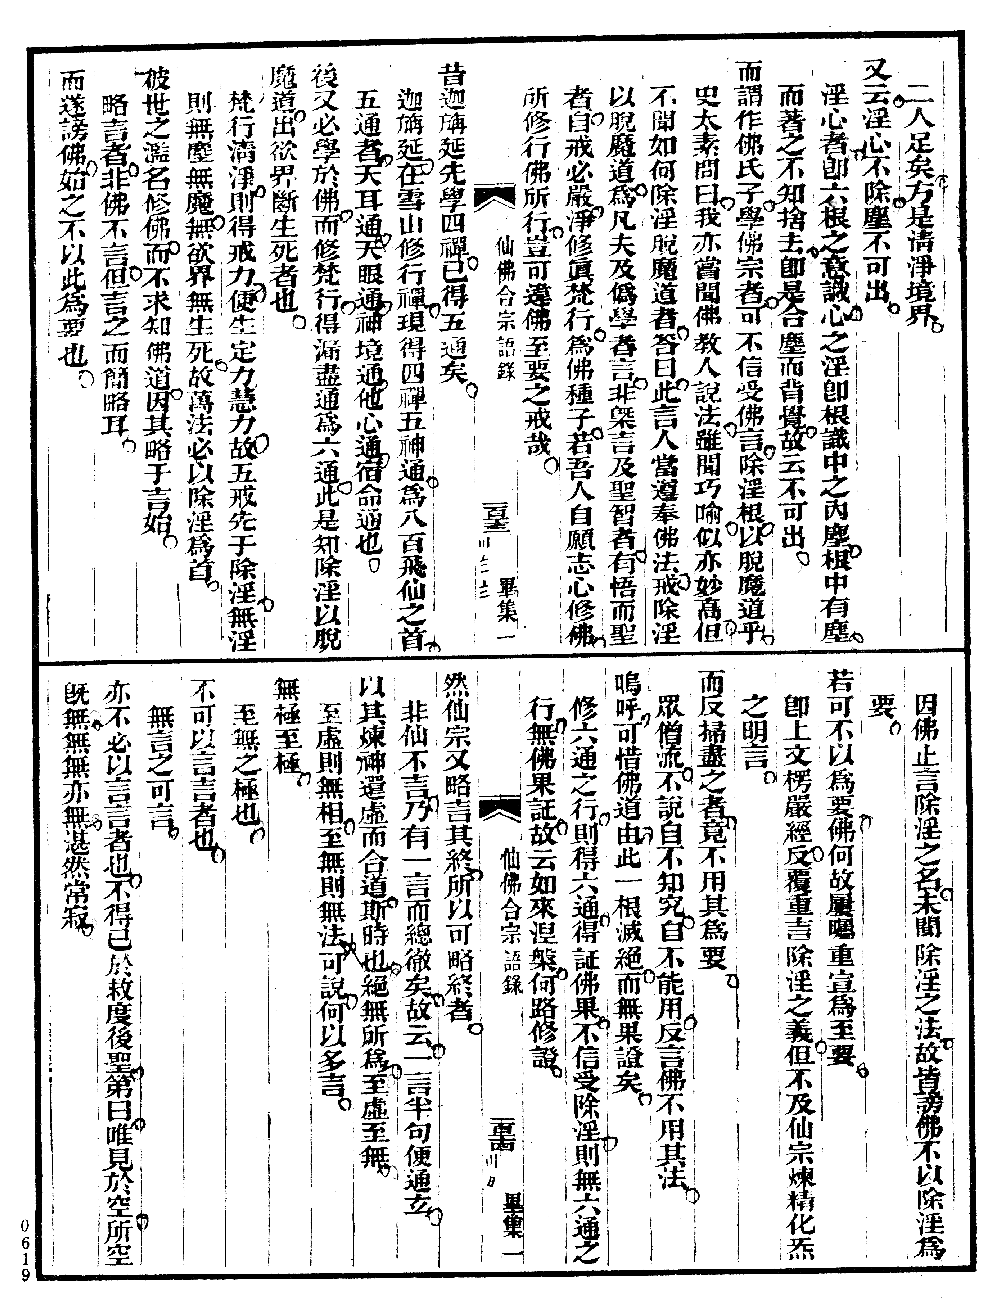 二人足矣方是淸淨境界
又云淫心不除塵不可出
淫心者卽六根之意識心之淫卽根識中之內塵根中有塵
而著之不知捨去卽是合塵而背覺故云不可出
而謂作佛氏子學佛宗者可不信受佛言除淫根以脫魔道乎
史太素問曰我亦嘗聞佛敎人說法雖聞巧喻似亦妙高但
不聞如何除淫脫魔道者答曰此言人當遵奉佛法戒除淫
以脫魔道爲凡夫及僞學者言非槩言及聖智者有悟而聖
者自戒必嚴淨修眞梵行爲佛種子若吾人自願志心修佛
所修行佛所行豈可違佛至要之戒哉
仙佛合宗語錄
畢集一
昔迦旃延先學四禪已得五通矣
迦旃延在雪山修行禪現得四禪五神通爲八百飛仙之首
五通者天耳通天眼通神境通他心通宿命通也
後又必學於佛而修梵行得漏盡通爲六通此是知除淫以脫
魔道出欲界斷生死者也
梵行淸淨則得戒力便生定力慧力故五戒先于除淫無淫
則無塵無魔無欲界無生死故萬法必以除淫爲首
彼世之濫名修佛而不求知佛道因其略于言始
略言者非佛不言但言之而簡略耳
而遂謗佛始之不以此爲要也
因佛止言除淫之名未聞除淫之法故皆謗佛不以除淫爲
要
若可不以爲要佛何故屢囑重宣爲至要
卽上文楞嚴經反覆重言除淫之義但不及仙宗煉精化炁
之明言
而反掃盡之者竟不用其爲要
眾僧流不說自不知究自不能用反言佛不用其法
嗚呼可惜佛道由此一根滅絕而無果證矣
修六通之行則得六通得証佛果不信受除淫則無六通之
行無佛果証故云如來涅槃何路修證
仙佛合宗語錄
畢集一
然仙宗又略言其終所以可略終者
非仙不言乃有一言而總徹矣故云一言半句便通玄
以其煉神還虛而合道斯時也絕無所爲至虛至無
至虛則無相至無則無法可說何以多言
無極至極
至無之極也
不可以言言者也
無言之可言
亦不必以言言者也不得已於救度後聖第曰唯見於空所空
旣無無無亦無湛然常寂
0619